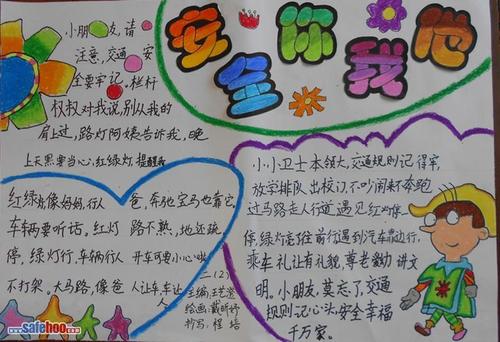 安全你我他
小朋友,请
注意,交通安
全要牢记。栏杆
权权对我说,别从我的
肩上过,路灯阿姨告诉我,晚
上天黑要当心,红绿灯提醒我
红绿灯像妈妈,行人
车辆要听话。红灯
停,绿灯行,车辆行人
不打架。大马路,像爸
爸,奔驰宝马也靠它,
路不熟,地还疏
开车可要小心啦
人让车,车让
人
二(2)
绘画:戴昕妤
抄写:程培
小小卫士本领大,交通规则记得牢,
放学排队出校门,不吵闹来不奔跑
过马路走人行道遇见红灯停一
停,绿灯亮了往前行遇到汽车靠边行,
乘车礼让有礼貌,尊老爱幼讲文
明。小朋友,莫忘了,交通
规则记心头,安全幸福
千万家。
www.safehoo.com